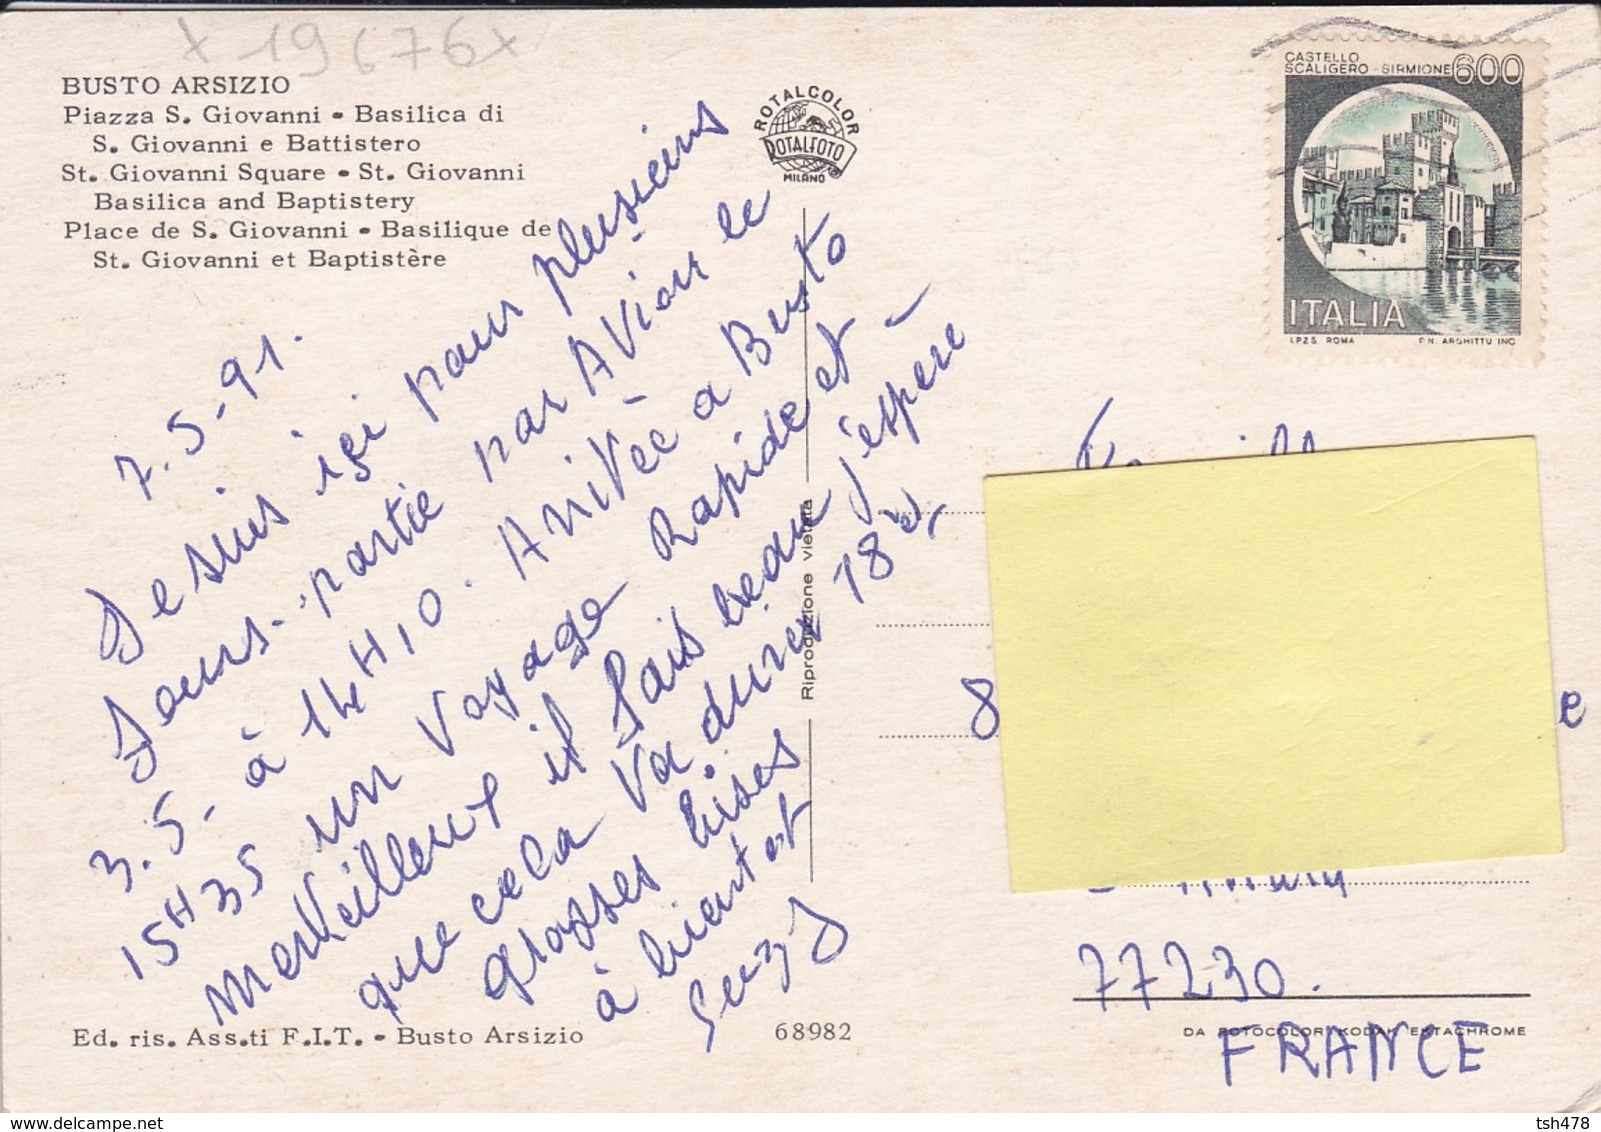 x 19676x
BUSTO ARSIZIO
Piazza S. Giovanni - Basilica di
S. Giovanni e Battistero
St. Giovanni Square - St. Giovanni
Basilica and Baptistery
Place de S. Giovanni - Basilique de
St. Giovanni et Baptistère
ROTALCOLOR
ROTALFOTO
MILANO
CASTELLO
SCALIGERO - SIRMIONE 600
ITALIA
I.P.Z.S. ROMA P.N. ARGHITTU INC.
7.5-91.
Je suis içi pour plusieurs
Jours. partie par AVion le
3.5- à 14H10. ArriVée a Busto
15H35 un Voyage Rapide et
merVeilleux il fais beau j'espère
que cela Va durer 18
grosses bises
à bientot
Suzy
Riproduzione vietata
8
e
77230.
FRANCE
Ed. ris. Ass.ti F.I.T. - Busto Arsizio
68982
DA FOTOCOLOR KODAK EKTACHROME
tsh478